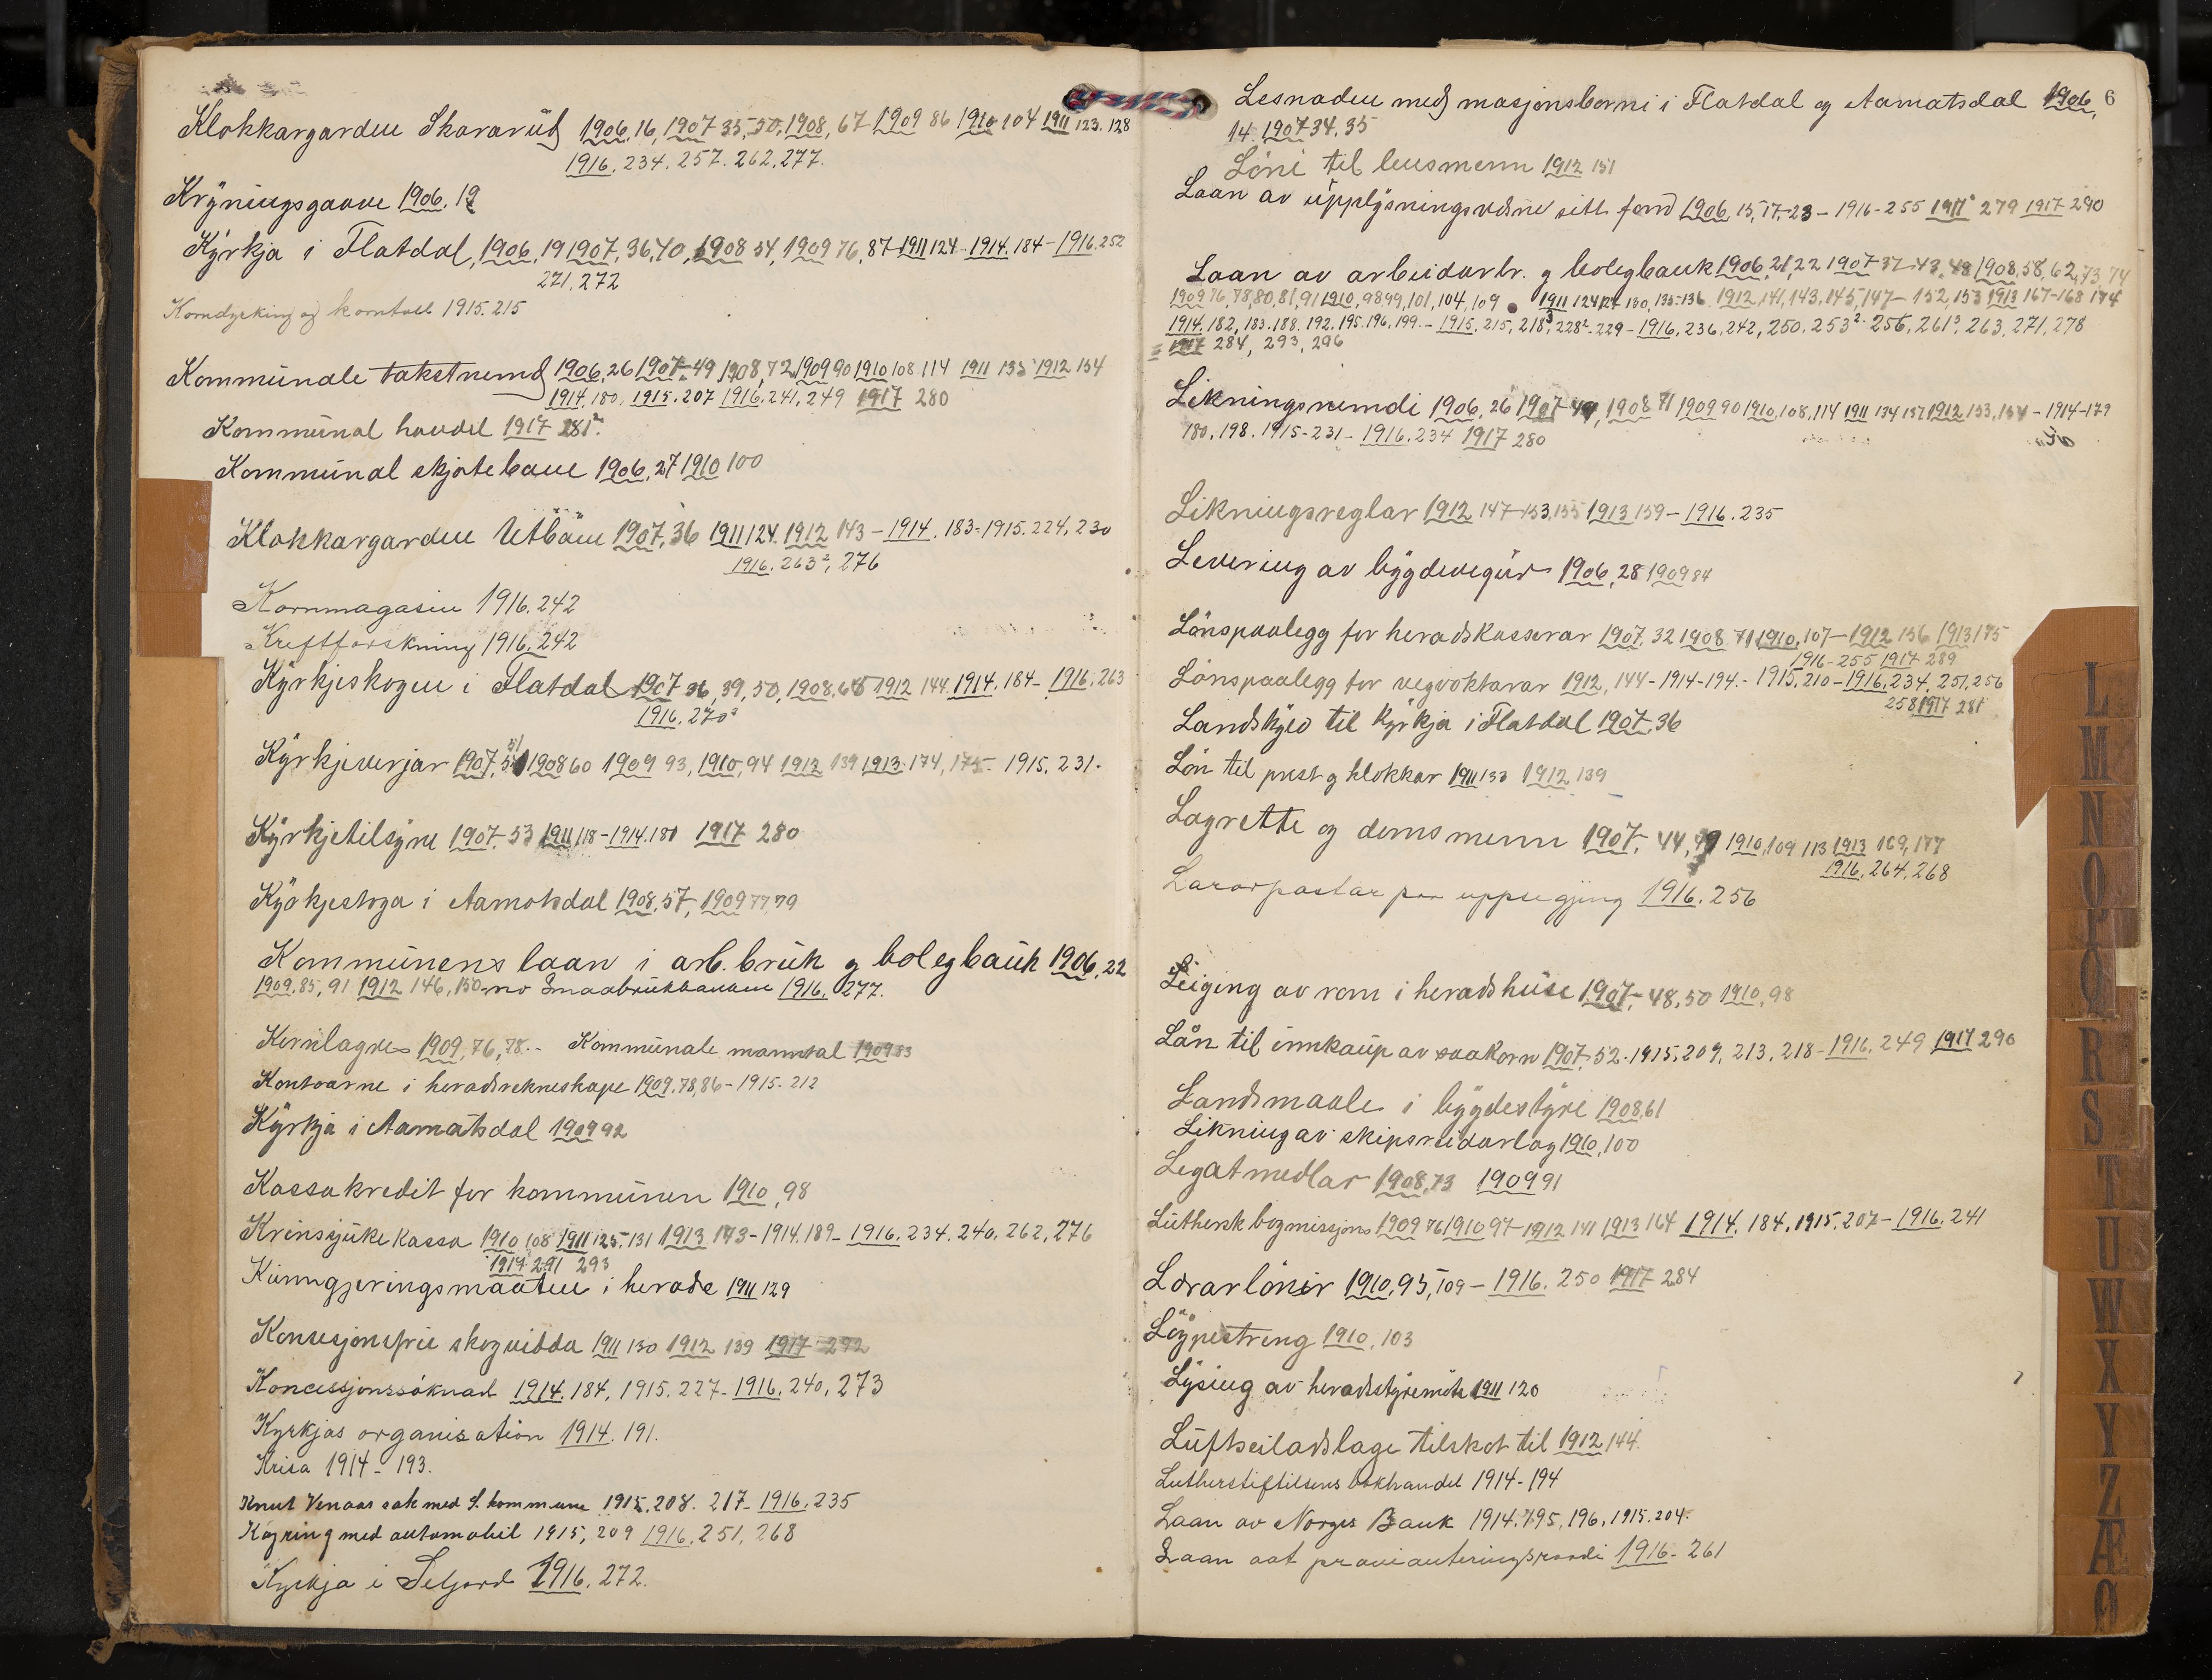 Klokkargarden Skorarud 1906, 16, 1907 35, 50, 1908, 67 1909 86 1910 104 1911 123. 128
1916. 234. 257. 262, 277.
Kryningsgaave 1906. 19
Kyrkja i Flatdal, 1906, 19 1907, 36, 40, 1908 54, 1909 76, 87 1911 124 - 1914. 184 - 1916. 252
271, 272
Korndyrking og korntoll 1915. 215
Kommunale takstnemd 1906, 26 1907 - 49 1908, 72 1909 90 1910 108 114 1911 135 1912 154
1914, 180, 1915. 207 1916. 241, 249 1917 280
Kommunal handel 1917 281².
Kommunal skjøtebaue 1906, 27 1910 100
Klokkargarden Utbøen 1907, 36 1911 124. 1912 143 - 1914. 183 - 1915. 224, 230
1916. 263², 276
Kornmagasin 1916. 242
Kreftforskning 1916. 242
Kyrkjeskogen i Flatdal 1907 36, 39, 50, 1908, 65 1912 144. 1914. 184 - 1916. 263
1916. 270²
Kyrkjeverjar 1907, 51 1908 60 1909 93, 1910, 94 1912 139 1913. 174, 175 - 1915. 231.
Kyrkjetilsyne 1907 - 53 1911, 118 - 1914. 180 1917 280
Kyrkjestoga i Aamotsdal 1908, 57, 1909 77, 79
Kommunens laan i arb. bruk og bolegbank 1906, 22
1909, 85, 91 1912 146, 150 no Smaabrukbanken 1916. 277.
Kornlagre 1909, 76, 78. - Kommunale manntal 1909 83
Kontoarne i heradsrekneskape 1909, 78, 86 - 1915. 212
Kyrkja i Aamotsdal 1909 92
Kassakredit for kommunen 1910, 98
Krinssjukekassa 1910 108 1911 125, 131 1913 173 - 1914. 189 - 1916. 234. 240. 262, 276
1917 291 293
Kunngjeringsmaaten i herade 1911 129
Konsesjonsfrie skogvidda 1911 130 1912 139 1917 292
Koncessjonssøknad 1914. 184, 1915. 227 - 1916. 240, 273
Kyrkjas organisation 1914. 191.
Krisa 1914 - 193.
Knut Venaas sak med S. kommune 1915. 208. 217 - 1916. 235
Køyring med automobil 1915, 209 1916. 251, 268
Kyrkja i Seljord 1916. 272.
6
Lesnaden med masjonsborni i Flatdal og Aamotsdal 1906,
14. 1907 34. 35
Løni til lensmenn 1912 151
Laan av upplysningsvesne sitt fond 1906, 15, 17, - 23 - 1916 - 255 1917 279 1917 290
Laan av arbeidarbr. og bolegbank 1906, 21, 22 1907 - 37 - 43, 48 1908, 58, 62, 73, 74
1909 76, 78, 80, 81, 91 1910, 98, 99, 101, 104, 109 1911 124 127 130, 135 - 136 1912, 141, 143, 145, 147 - 152, 153 1913 167 - 168 174
1914. 182, 183. 188. 192. 195. 196. 199. - 1915. 215, 218³, 228² - 229 - 1916. 236. 242, 250. 253² 256, 261³, 263, 271, 278
1917 284, 293, 296
Likningsnemdi 1906, 26 1907 - 49, 1908 71 1909 90 1910, 108, 114 1911 134 137 1912 153, 154 - 1914 - 179
180. 198. 1915 - 231 - 1916. 234 1917 280
Likningsreglar 1912 147 - 153, 155 1913 159 - 1916. 235
Levering av bygdevegur 1906, 28 1909 84
Lønspaalegg for heradskasserar 1907, 32 1908 71 1910, 107 - 1912 156 1913 175
1916 - 255 1917 289
Lønspaalegg for vegvoktarar 1912, 144 - 1914 - 194 - 1915. 210 - 1916. 234. 251, 256
258 1917 281
Landskyld til kyrkja i Flatdal 1907, 36
Løn til prest og klokkar 1911 133 1912 139
Lagrette og domsmenn 1907, 44, 49 1910, 109 113 1913 169, 177
1916. 264, 268
Lærarpostar paa uppsegjing 1916. 256
Leiging av rom i heradshuse 1907, - 48, 50 1910, 98
Lån til innkaup av saakorn 1907, 52 - 1915, 209, 213, 218 - 1916. 249 1917 290
Landsmaale i bygdestyre 1908, 61
Likning av skipsreidarlag 1910, 100
Legatmedlar 1908, 73 1909 91
Luthersk bogmissjons 1909 76 1910 97 - 1912 141 1913 164 1914. 184, 1915. 207 - 1916. 241
Lærarlønir 1910, 95, 109 - 1916. 250 1917 284
Løypestreng 1910, 103
Lysing av heradstyremøte 1911 120
Luftseiladslage tilskot til 1912 144.
Lutherstiftilsens bokhandel 1914 - 194
Laan av Norges Bank 1914. 195, 196, 1915. 204.
Laan aat provianteringsraadi 1916 - 261
L
M
N
O
P
Q
R
S
T
U
W
X
Y
Z
Æ
Ø